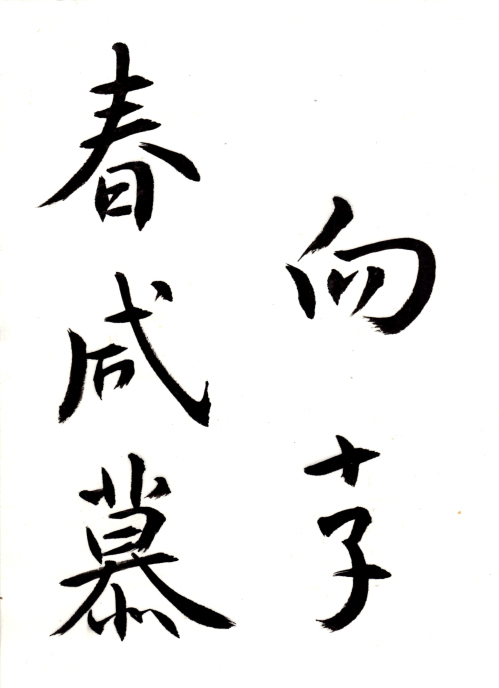 向
春咸慕